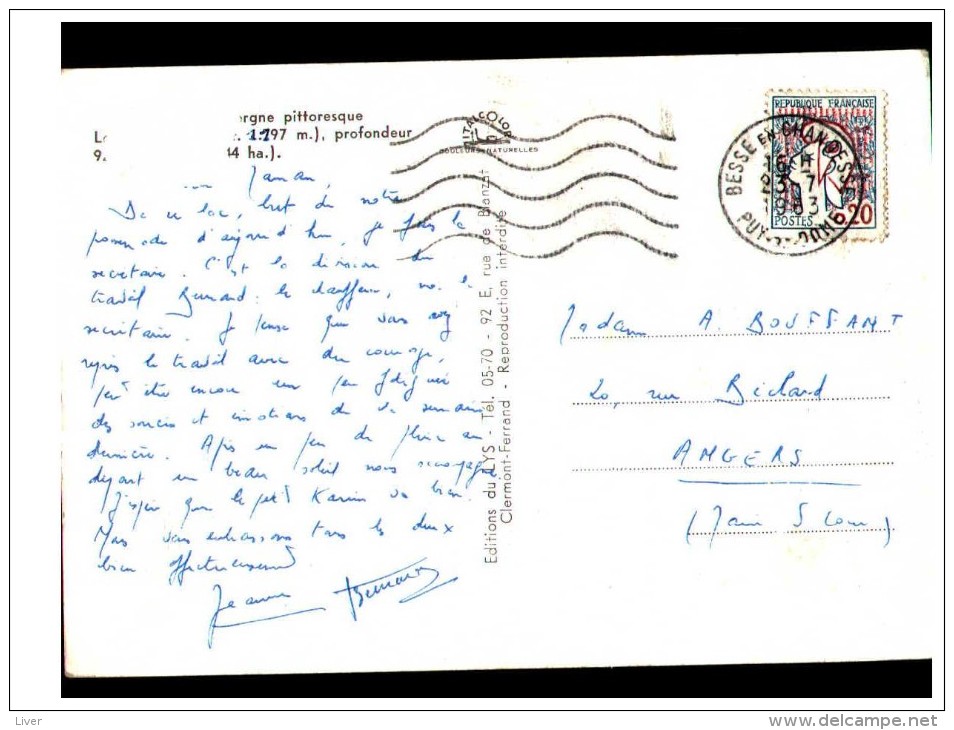 rgne pittoresque
1.197 m.), profondeur
4 ha.).
VITALCOLOR
COULEURS NATURELLES
REPUBLIQUE FRANÇAISE
0,20
POSTES
BESSE EN CHANDESSE
16 H
23 - 7
1963
PUY-DE-DOME
Maman,
De ce lac, but de notre
promenade d'aujourd'hui, je fais la
secrétaire. C'est la division du
travail Bernard: le chauffeur, moi la
secrétaire. Je pense que vous avez
repris le travail avec du courage,
peut être encore un peu fatigués
des soucis et émotions de la semaine
dernière. Après un peu de pluie au
départ un beau soleil nous accompagne
J'espère que le petit Karim va bien.
Nous vous embrassons tous les deux
bien affectueusement
Jeanne Bernard
Editions du LYS - Tél. 05-70 - 92 E, rue de Blanzat
Clermont-Ferrand - Reproduction interdite
Madame A. BOUFFANT
20, rue Béclard
ANGERS
(Maine & Loire)
Liver
delcampe.net